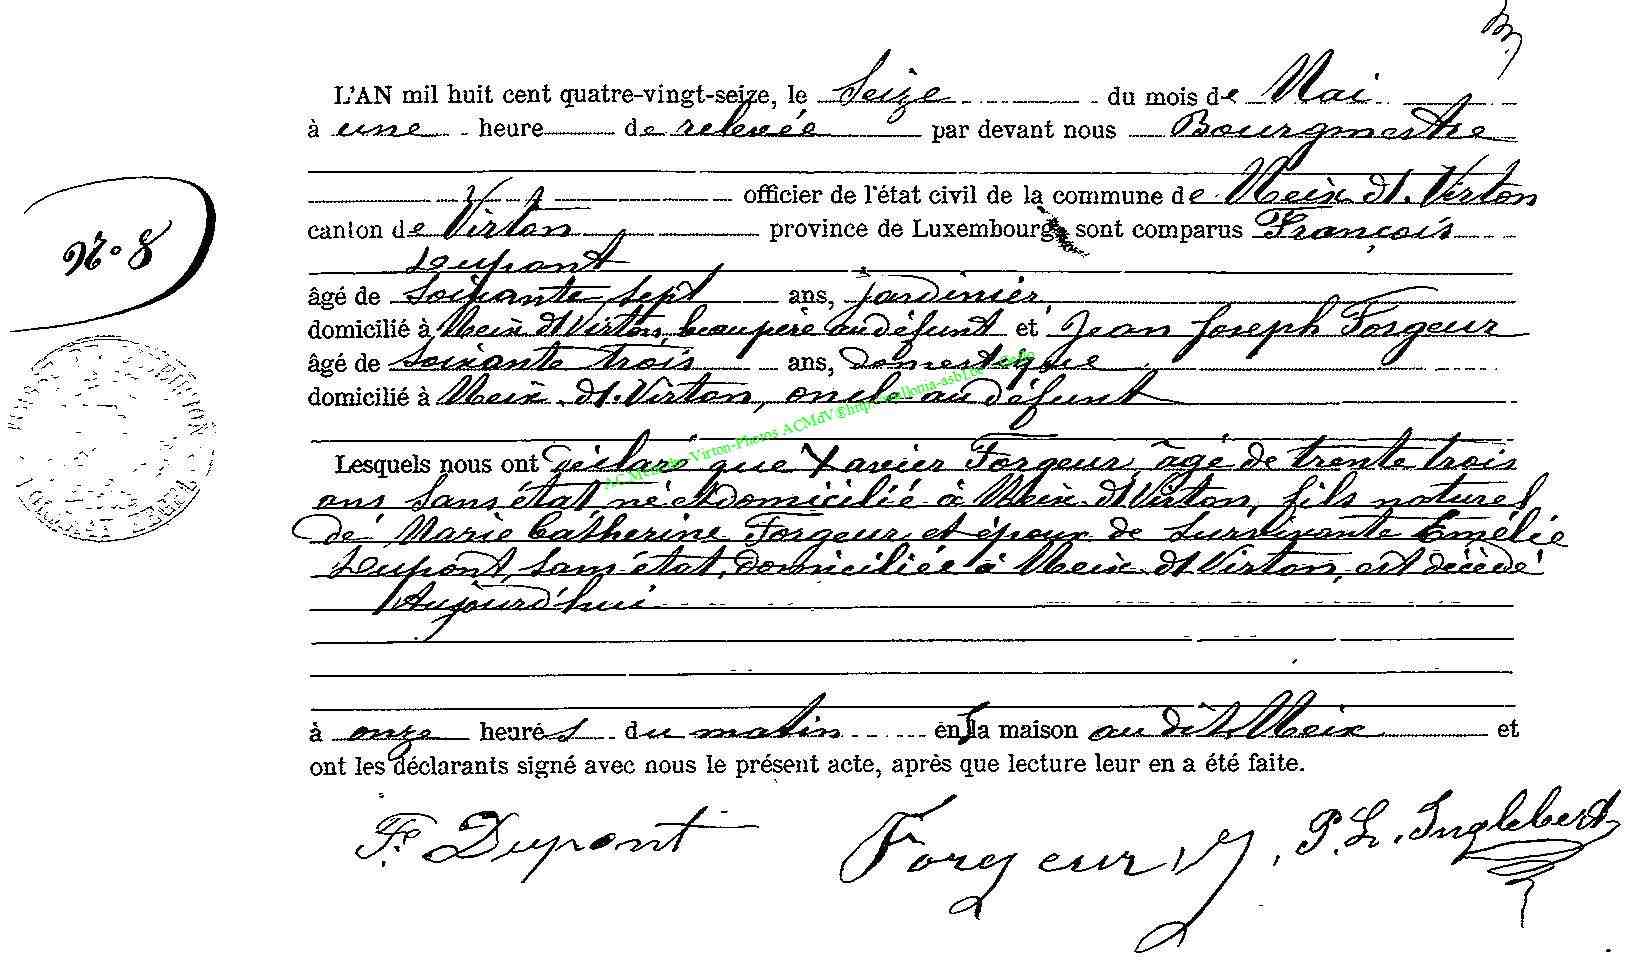 L'AN mil huit cent quatre-vingt-seize, le Seize du mois de Mai
à une heure de relevée par devant nous Bourgmestre
officier de l'état civil de la commune de Meix dt. Virton
canton de Virton province de Luxembourg sont comparus François
N° 8
Dupont
âgé de Soixante sept ans, jardinier,
domicilié à Meix dt Virton, beau père au défunt et Jean Joseph Forgeur
âgé de Soixante trois ans, domestique
domicilié à Meix dt. Virton, oncle au défunt
Lesquels nous ont déclaré que Xavier Forgeur, âgé de trente trois
ans sans état né et domicilié à Meix dt Virton, fils naturel
de Marie Catherine Forgeur et époux de survivante Emélie
Dupont, sans état, domiciliée à Meix dt Virton, est décédé
Aujourd'hui
à onze heures du matin en la maison au dit Meix et
ont les déclarants signé avec nous le présent acte, après que lecture leur en a été faite.
Fs. Dupont Forgeur J J. P. L. Inglebert